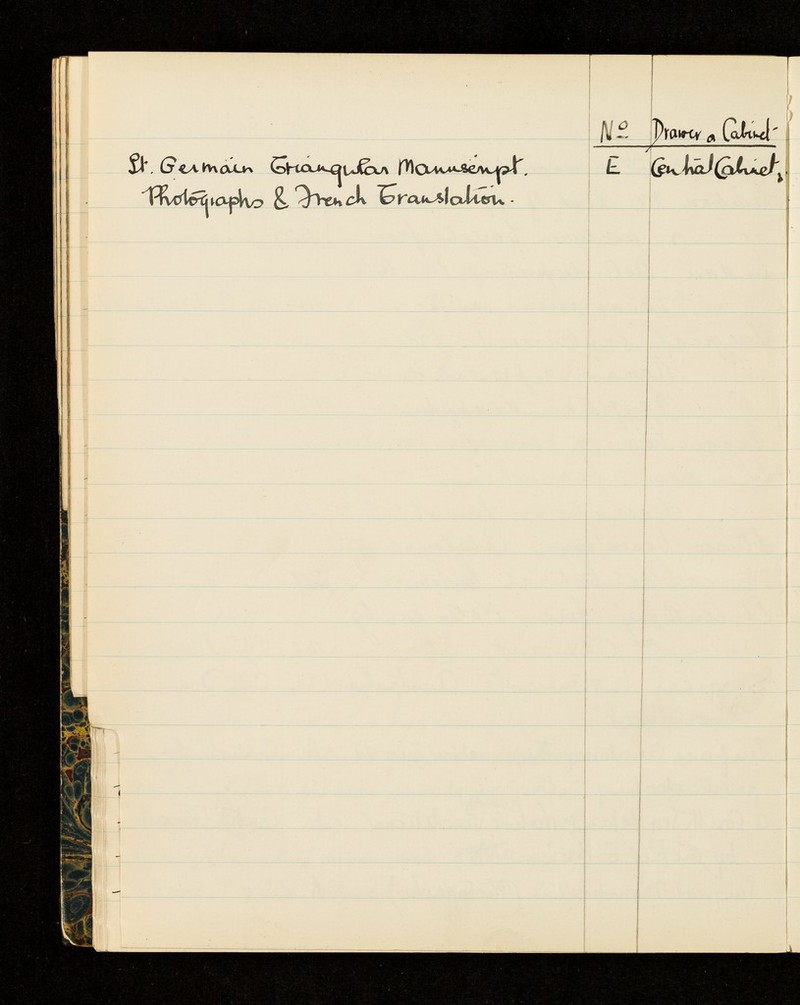 Nº Drawer or Cabinet
St. Germain Triangular Manuscript. E Central Cabinet,
Photographs & French Translation.